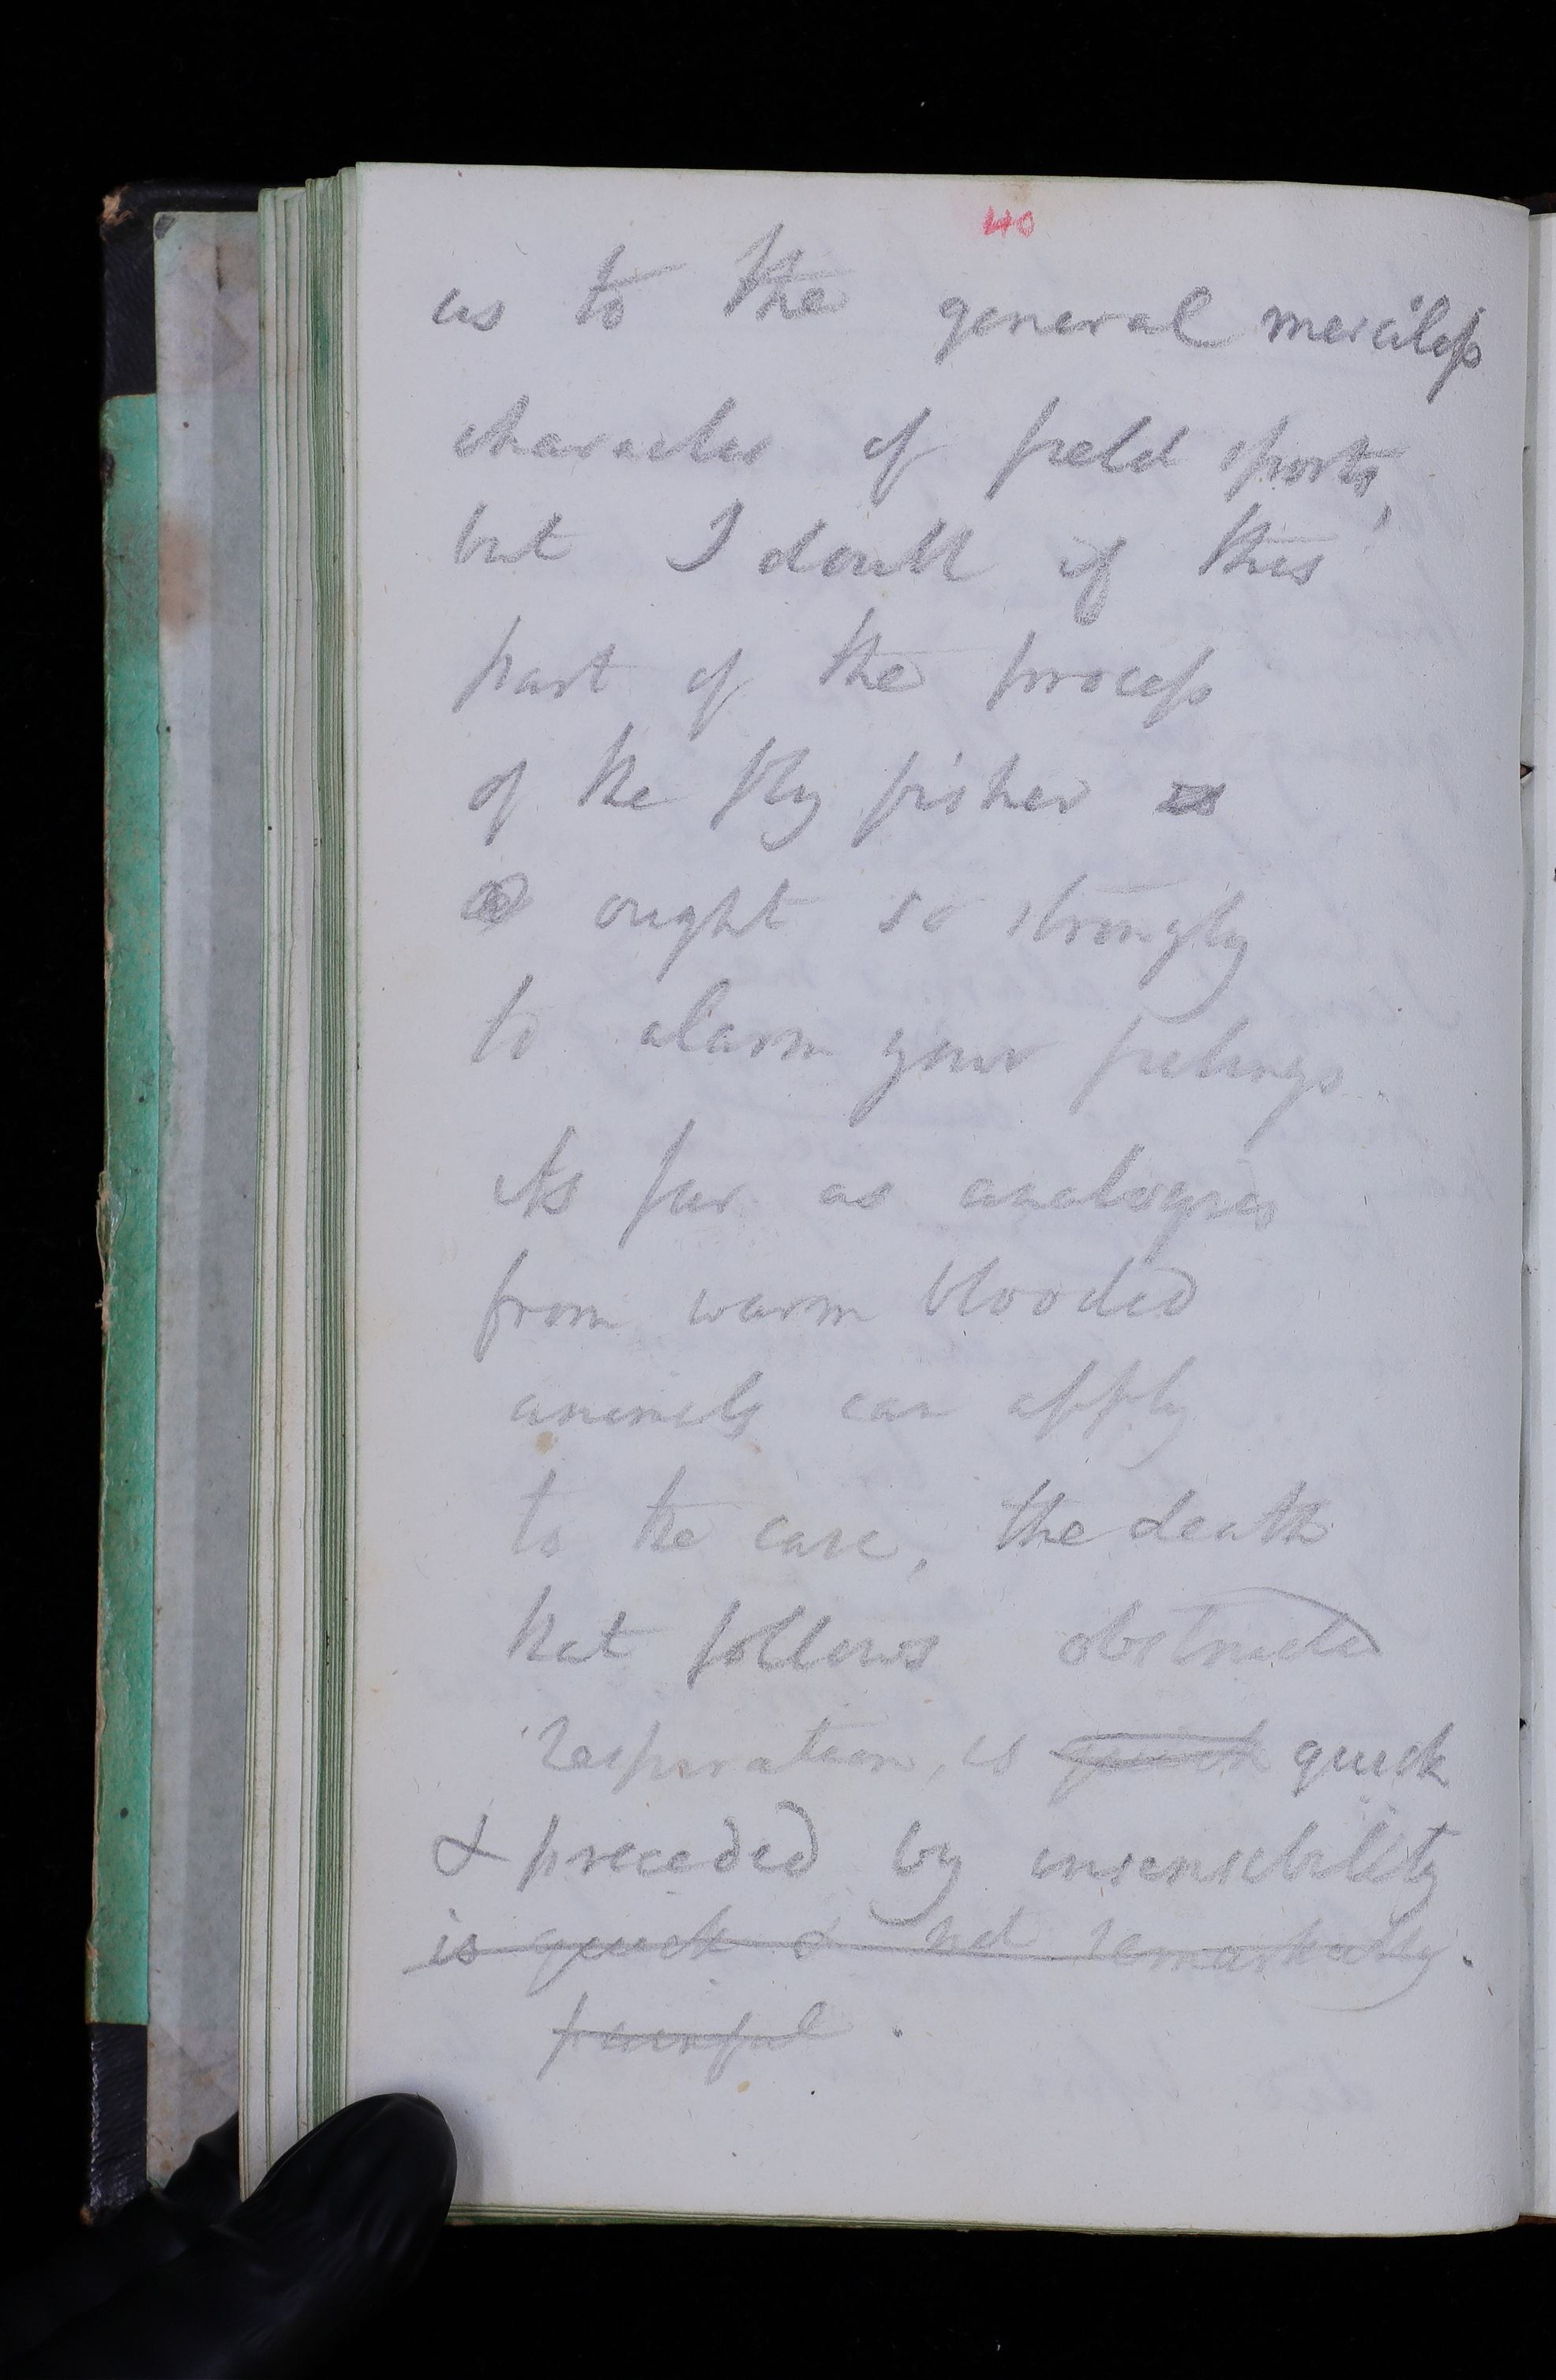 40
as to the general merciless
character of field sports,
but I doubt if this
part of the process
of the fly fisher is
ought so strongly
to alarm your feelings
As far as analogies
from warm blooded
animals can apply
to the case, the death
that follows obstructed
respiration, is quick quick
& preceded by insensibility
is quick & not remarkably.
painful.